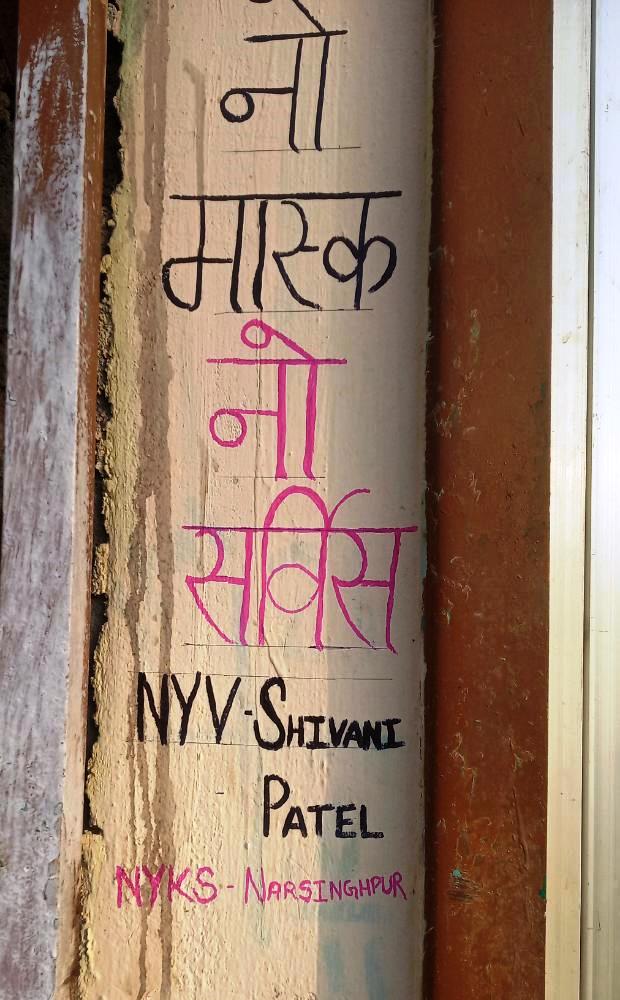 नो
मास्क
नो
सर्विस
NYV-SHIVANI
PATEL
NYKS - NARSINGHPUR